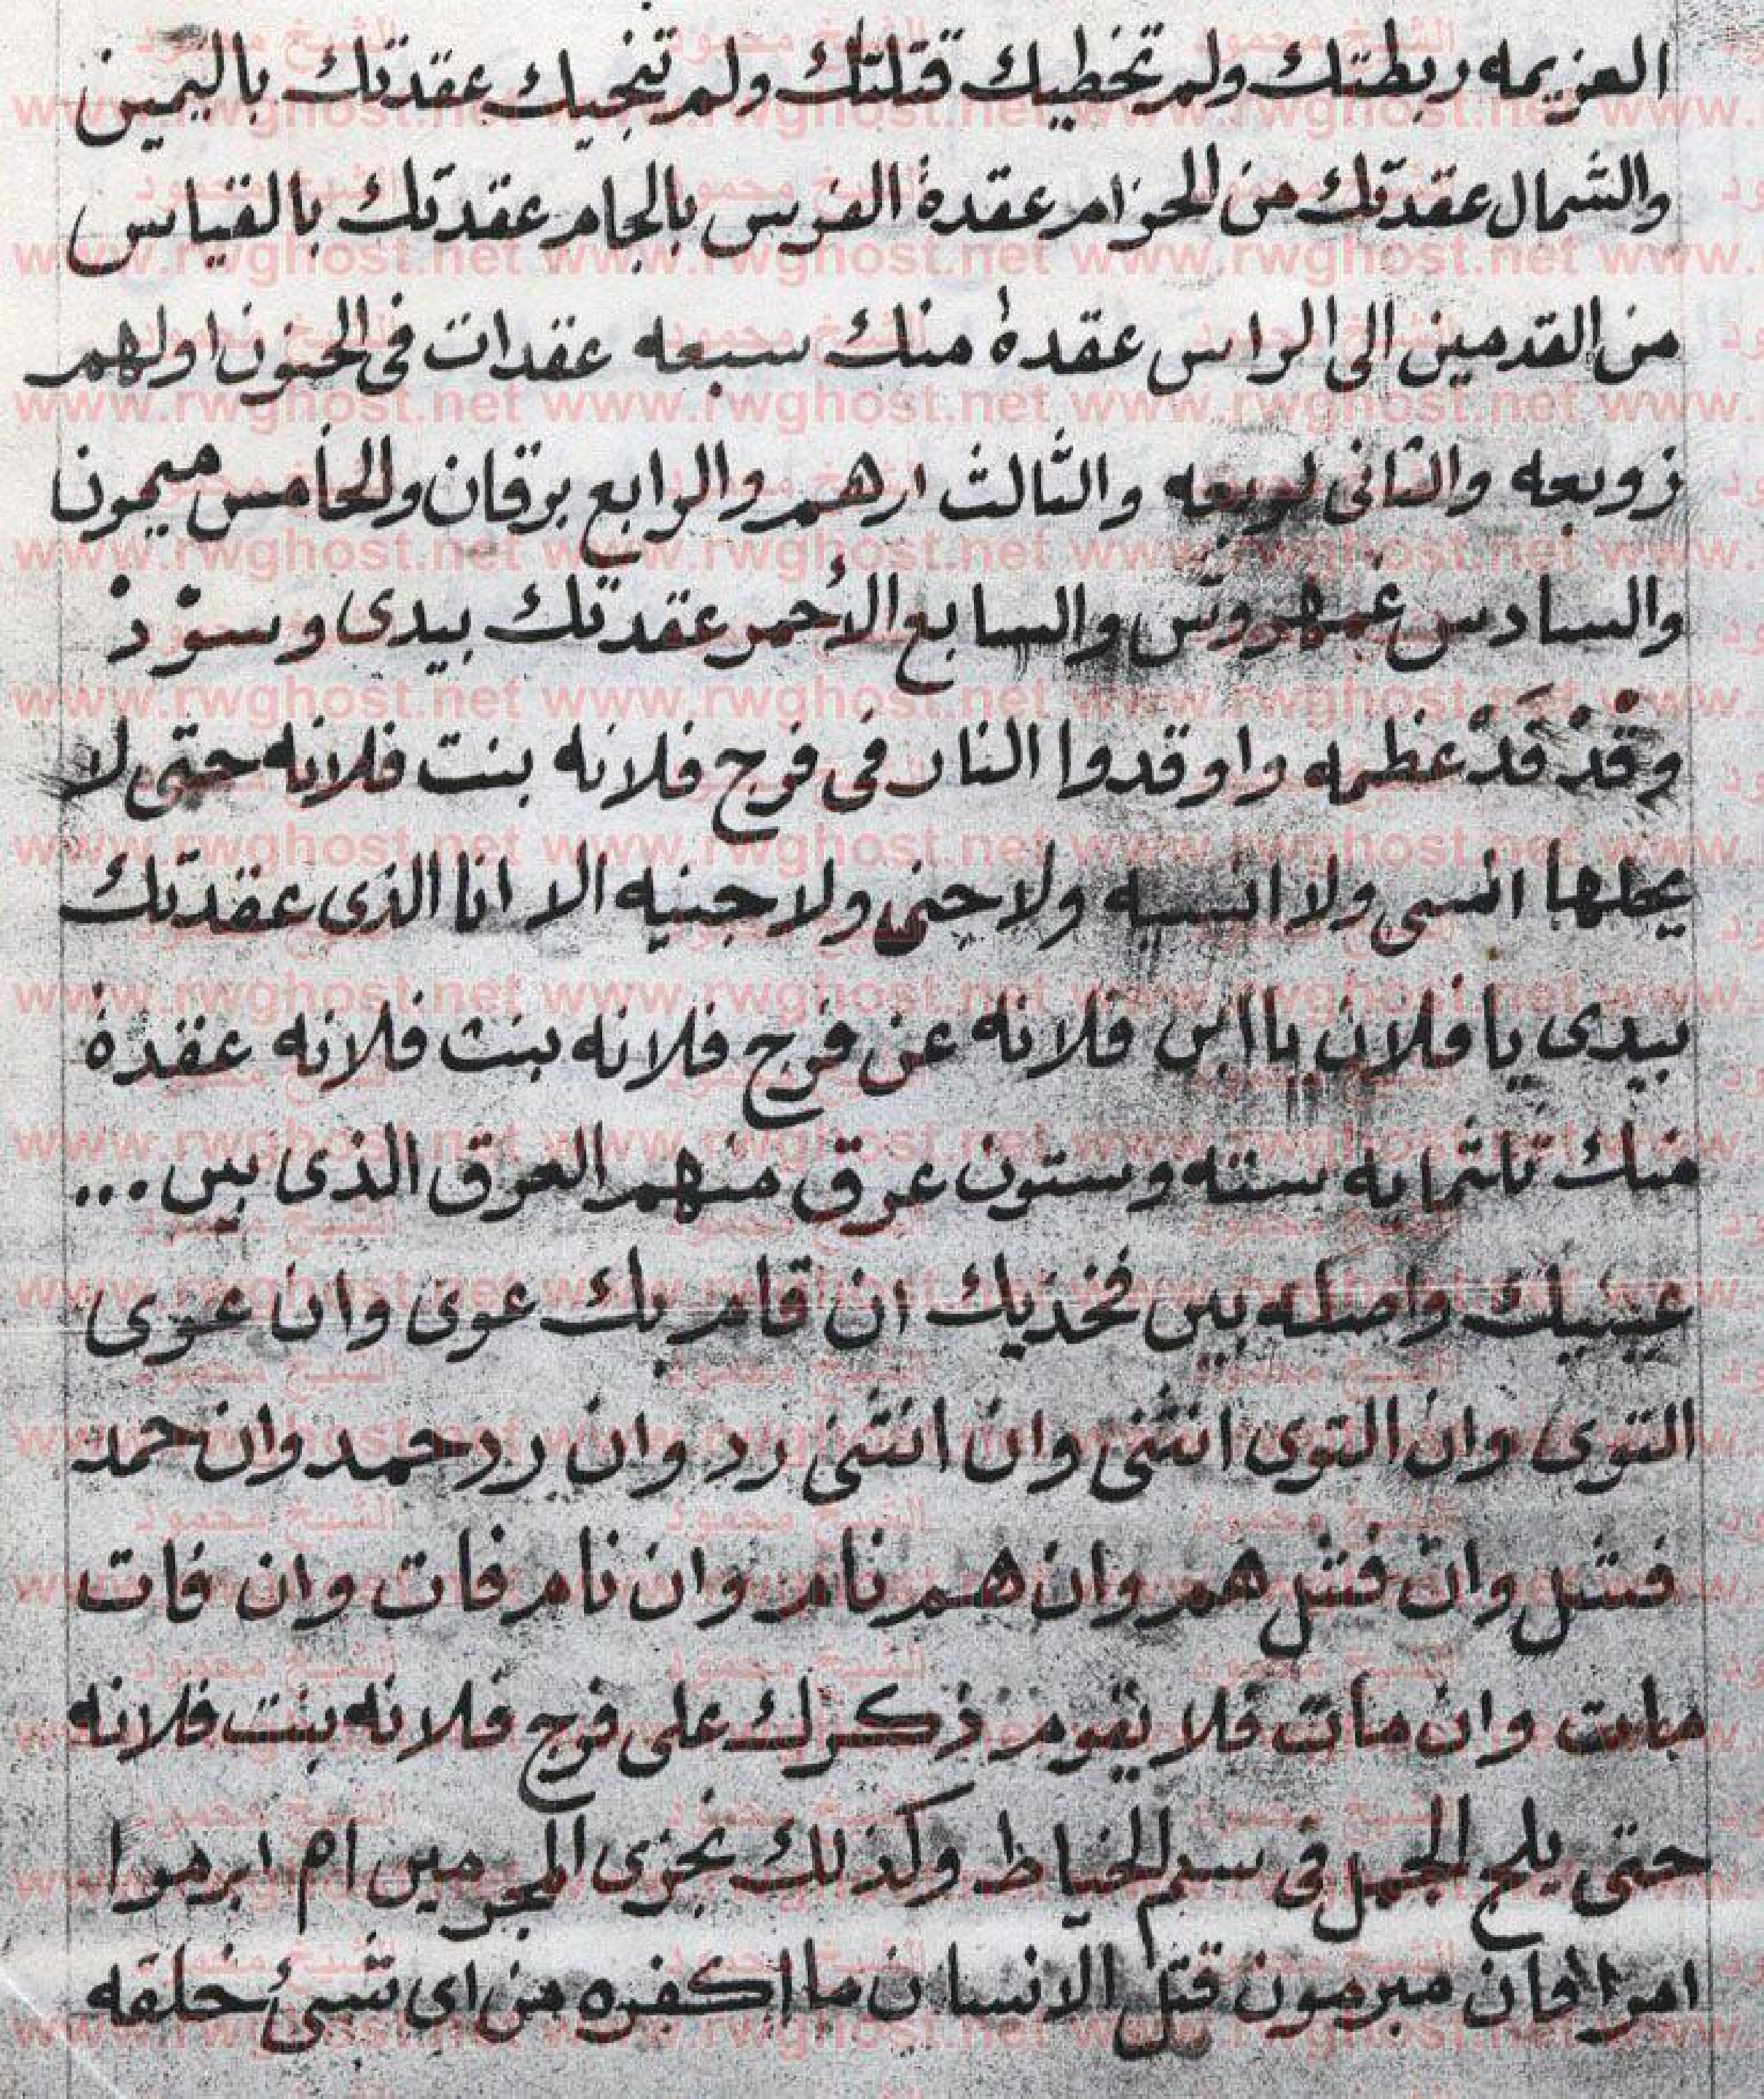 العزيمه ربطتك ولم تخطيك قتلتك ولم تنجيك عقدتك باليمين
والشمال عقدتك من الحزام عقدة الفرس بالجام عقدتك بالقياس
من القدمين الى الراس عقدة منك سبعه عقدات فى الحنون اولهم
زوبعه والثانى لوبعه والثالث ارهم والرابع برقان والخامس ميمون
والسادس غمهروتس والسابع الأحمر عقدتك بيدى وسؤذ
وقذ قذ عظمه واوقدوا النار فى فرج فلانه بنت فلانه حتى لا
يحلها انسى ولا انسيه ولا جنى ولا جنيه الا انا الذى عقدتك
بيدى يا فلان يا ابن فلانه عن فرج فلانه بنت فلانه عقدة
منك تلثمايه سته وستون عرق منهم العرق الذى بين ...
عينيك واصله بين فخذيك ان قام بك عوى وان عوى
التوى وان التوى انثنى وان انثنى رد وان رد حمد وان حمد
فتل وان فتل هم وان هم نام وان نام فات وان فات
مات وان مات فلا تقوم ذكرك على فرج فلانه بنت فلانه
حتى يلج الجمل فى سم الخياط وكذلك نجزى المجرمين ام ابرموا
امرا فان مبرمون قتل الانسان ما اكفره من اى شئ خلقه
www.rwghost.net
الشيخ محمود